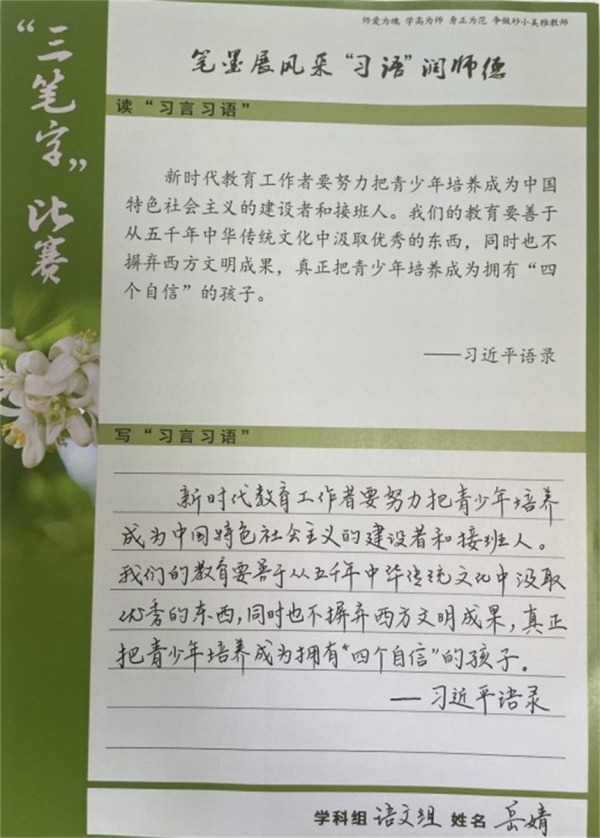 师爱为魂 学高为师 身正为范 争做砂小美雅教师
“三笔字”比赛
笔墨展风采“习语”润师德
读“习言习语”
新时代教育工作者要努力把青少年培养成为中国
特色社会主义的建设者和接班人。我们的教育要善于
从五千年中华传统文化中汲取优秀的东西，同时也不
摒弃西方文明成果，真正把青少年培养成为拥有“四
个自信”的孩子。
——习近平语录
写“习言习语”
新时代教育工作者要努力把青少年培养
成为中国特色社会主义的建设者和接班人。
我们的教育要善于从五千年中华传统文化中汲取
优秀的东西，同时也不摒弃西方文明成果，真正
把青少年培养成为拥有“四个自信”的孩子。
——习近平语录
学科组 语文组 姓名 岳婧